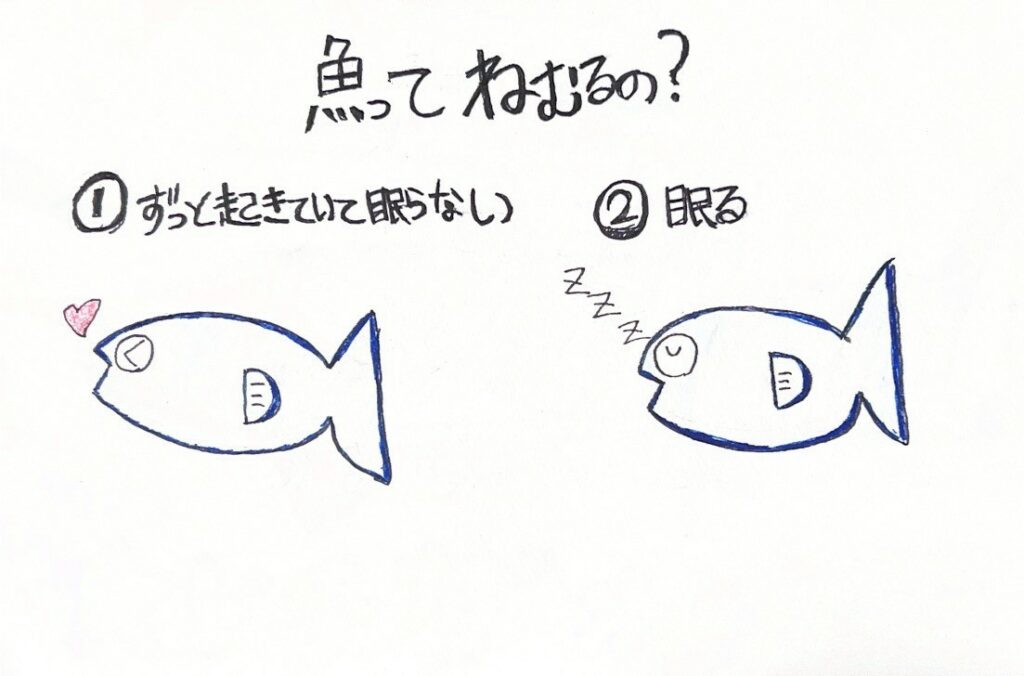 魚ってねむるの?
①ずっと起きていて眠らない
②眠る
z
z
z